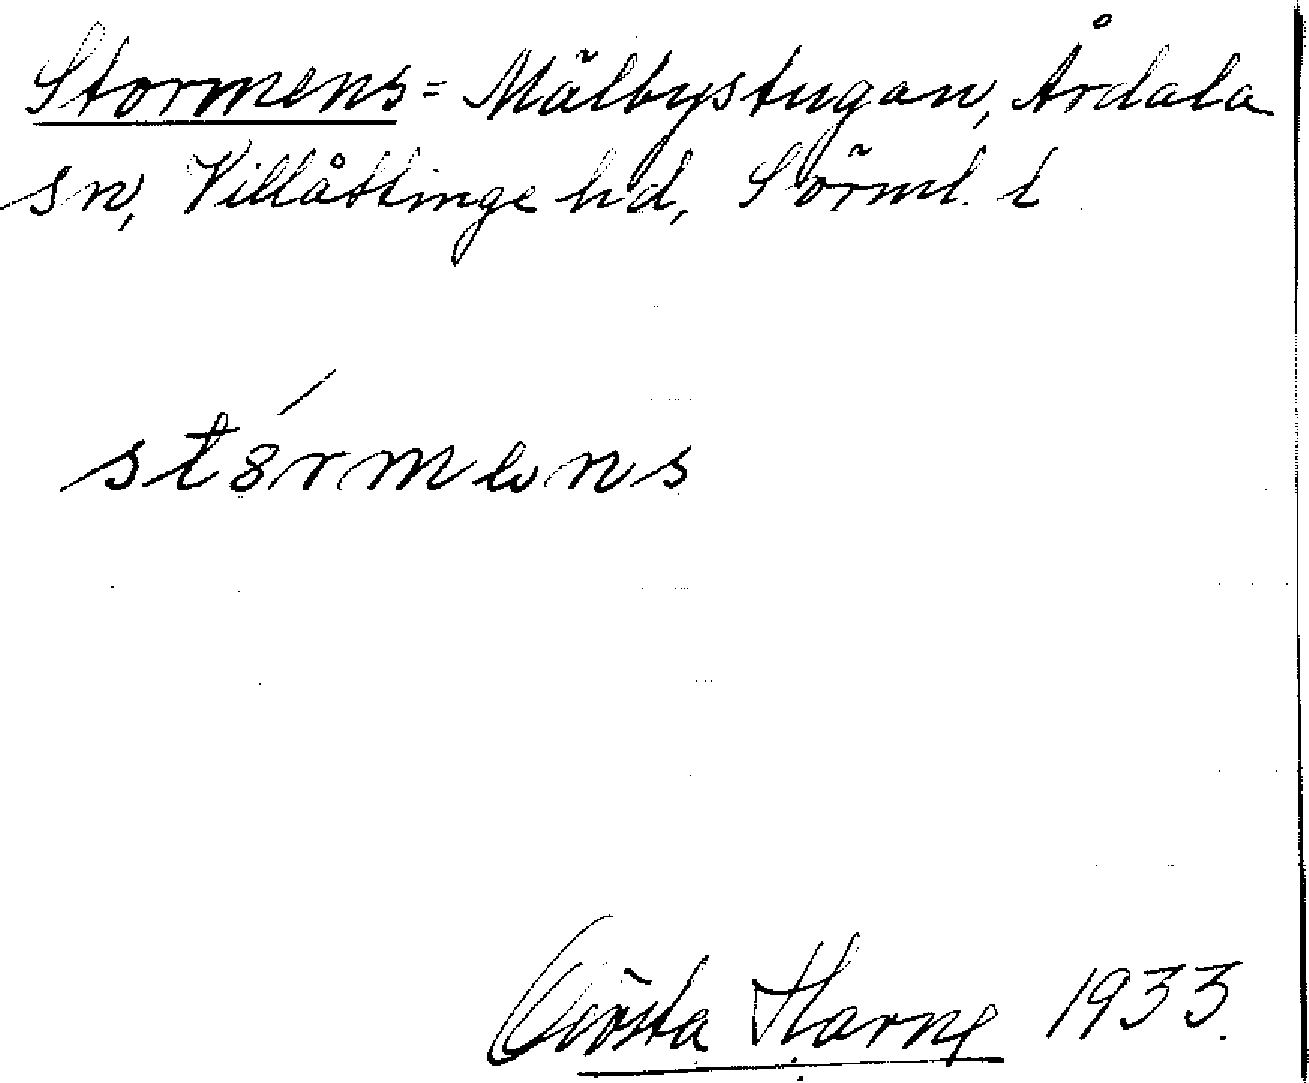 Stormens = Mälbystugan, Årdala
sn, Villåttinge hd, Sörml. l
stormens
Gösta Harne 1933.